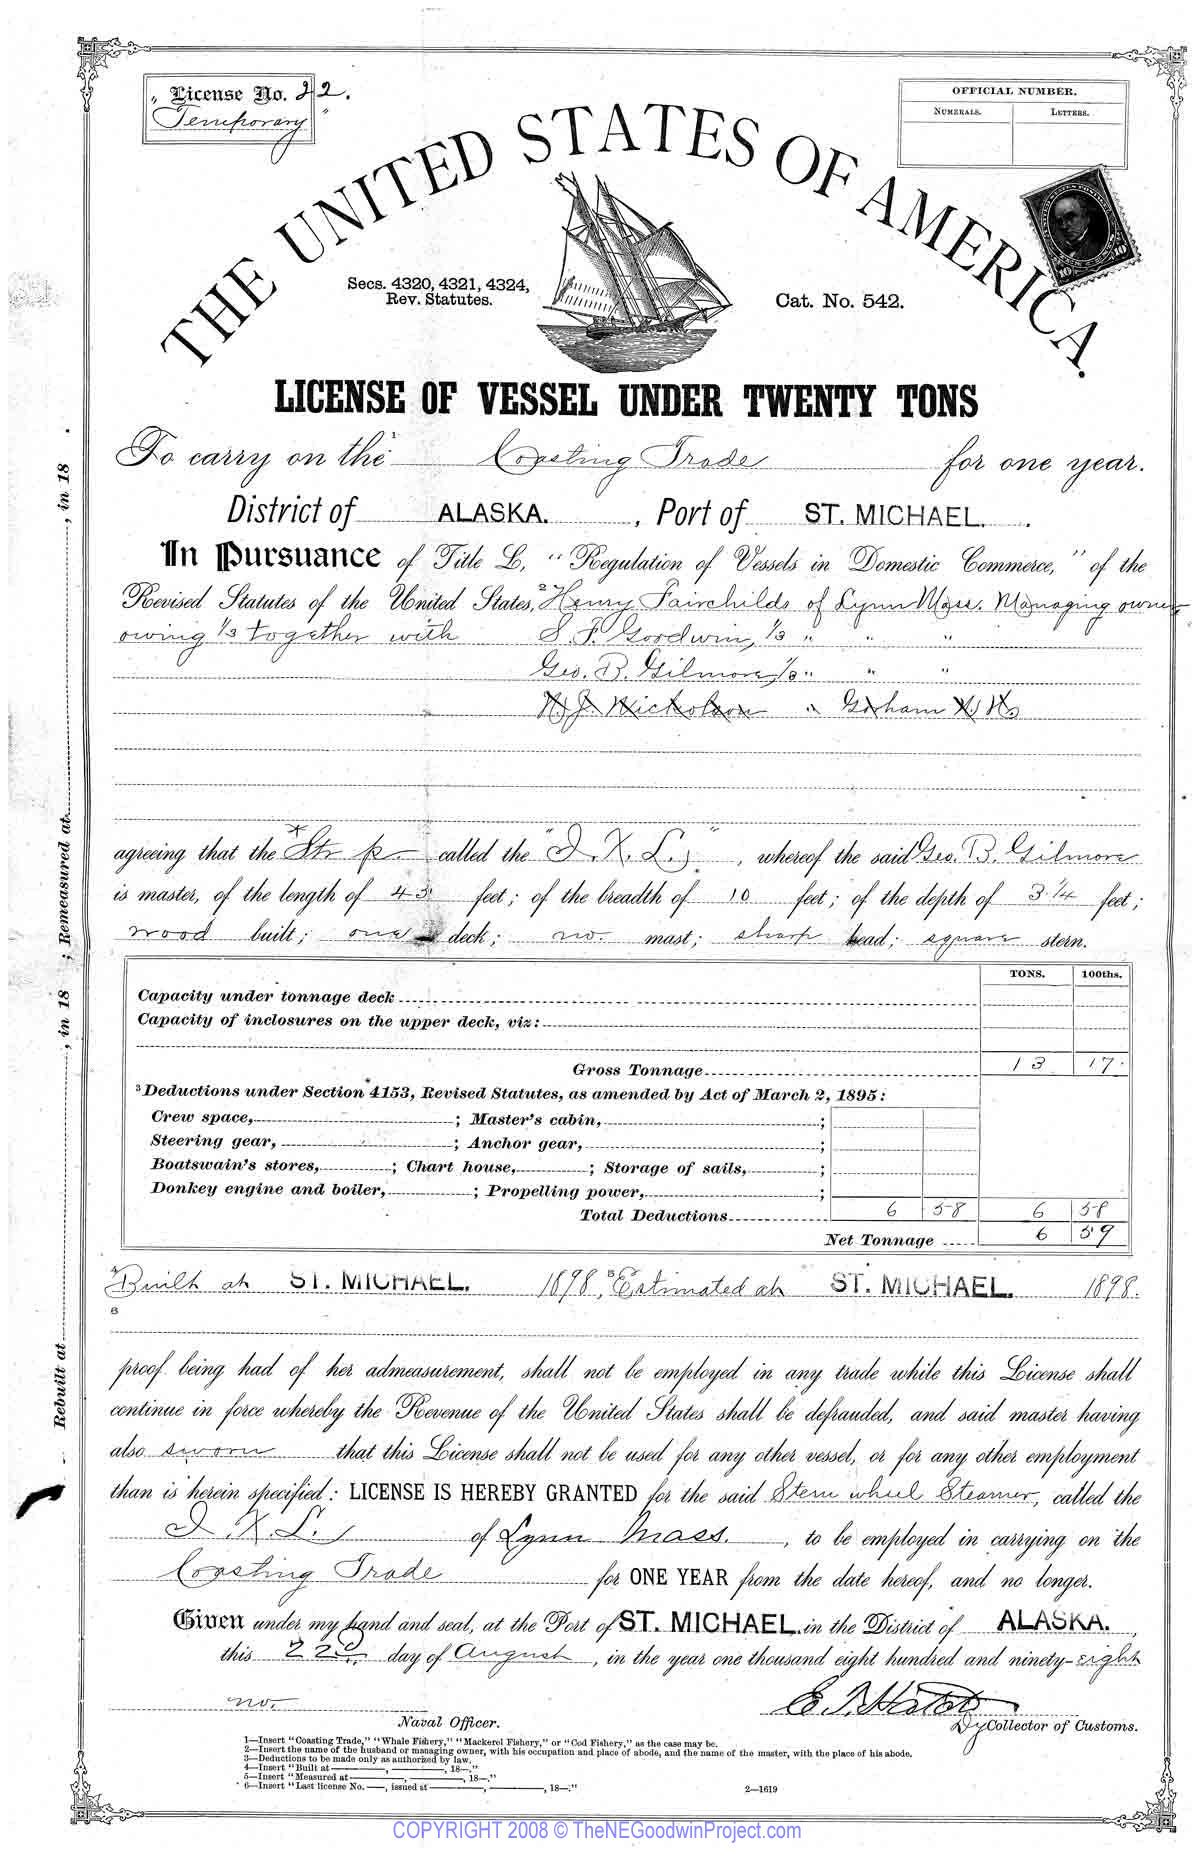 License No. 22.
"Temporary"
OFFICIAL NUMBER.
NUMERALS. LETTERS.
THE UNITED STATES OF AMERICA.
Secs. 4320, 4321, 4324,
Rev. Statutes.
Cat. No. 542.
10 10
LICENSE OF VESSEL UNDER TWENTY TONS
To carry on the 1 Coasting Trade for one year.
District of ALASKA. , Port of ST. MICHAEL. .
In Pursuance of Title L, "Regulation of Vessels in Domestic Commerce," of the
Revised Statutes of the United States, 2 Henry Fairchilds of Lynn Mass. Managing owner
owing 1/3 together with S. F. Goodwin, 1/3 " " "
Geo. B. Gilmore, 1/3 " " "
N. J. Nickolson " Gorham N. H.
agreeing that the * Str p. called the "I. X. L.," , whereof the said Geo. B. Gilmore
is master, of the length of 43 feet; of the breadth of 10 feet; of the depth of 3 1/4 feet;
wood built; one deck; no. mast; sharp head; square stern.
TONS. 100ths.
Capacity under tonnage deck
Capacity of inclosures on the upper deck, viz:
Gross Tonnage 13 17
3 Deductions under Section 4153, Revised Statutes, as amended by Act of March 2, 1895:
Crew space, ; Master's cabin, ;
Steering gear, ; Anchor gear, ;
Boatswain's stores, ; Chart house, ; Storage of sails, ;
Donkey engine and boiler, ; Propelling power, ;
Total Deductions 6 58 6 58
Net Tonnage 6 59
4 Built at ST. MICHAEL. 1898, 5 Estimated at ST. MICHAEL. 1898.
6
proof being had of her admeasurement, shall not be employed in any trade while this License shall
continue in force whereby the Revenue of the United States shall be defrauded, and said master having
also sworn that this License shall not be used for any other vessel, or for any other employment
than is herein specified: LICENSE IS HEREBY GRANTED for the said Stern wheel Steamer, called the
I. X. L., of Lynn Mass. , to be employed in carrying on the
Coasting Trade for ONE YEAR from the date hereof, and no longer.
Given under my hand and seal, at the Port of ST. MICHAEL. in the District of ALASKA. ,
this 22d. day of August , in the year one thousand eight hundred and ninety-eight
no.
Naval Officer.
Dy Collector of Customs.
1—Insert "Coasting Trade," "Whale Fishery," "Mackerel Fishery," or "Cod Fishery," as the case may be.
2—Insert the name of the husband or managing owner, with his occupation and place of abode, and the name of the master, with the place of his abode.
3—Deductions to be made only as authorized by law.
4—Insert "Built at ———, ———, 18—."
5—Insert "Measured at ———, ———, 18—."
6—Insert "Last license No. —, issued at ———, ———, 18—."
2—1619
Rebuilt at , in 18 ; Remeasured at , in 18 .
COPYRIGHT 2008 © TheNEGoodwinProject.com